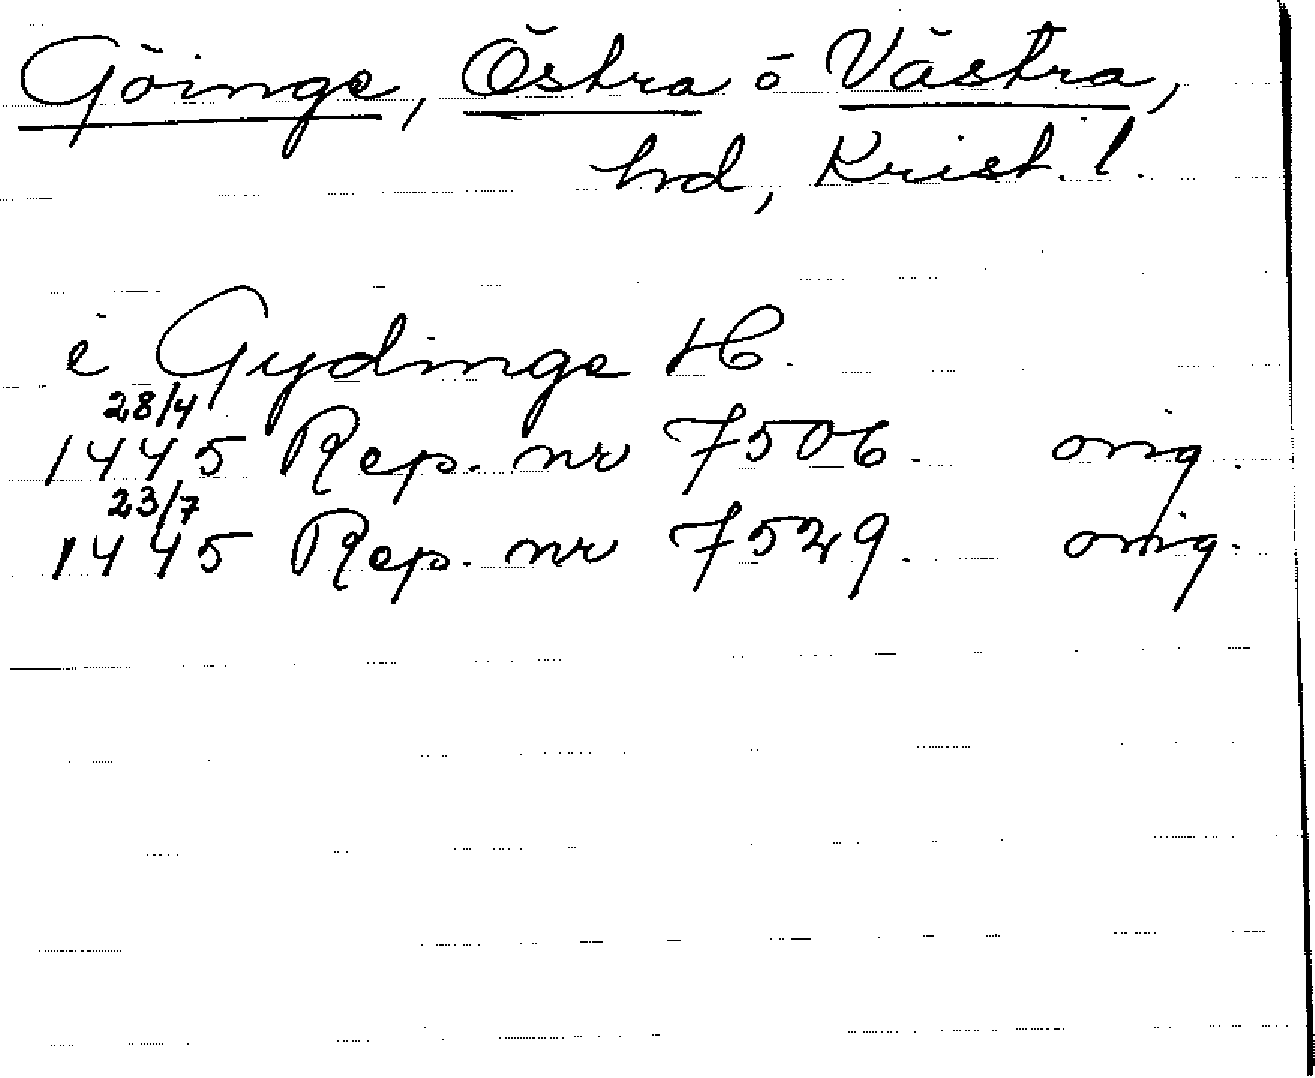 Göinge, Östra o Västra,
hrd, Krist. l.
i Gydinge H.
28/4
1445 Rep. nr 7506. orig.
23/7
1445 Rep. nr 7529. orig.